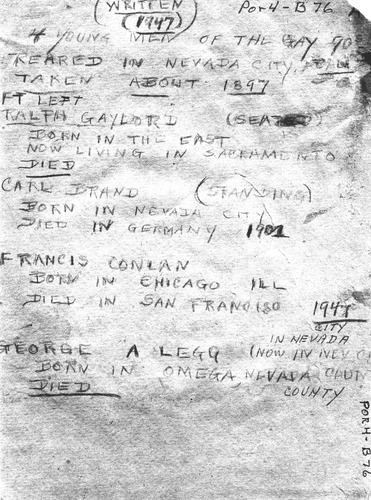 (WRITTEN
(1947)
Por4-B76
4 YOUNG MEN OF THE GAY 90
REARED IN NEVADA CITY,
TAKEN ABOUT 1897
FT LEFT
RALPH GAYLORD (SEATED)
BORN IN THE EAST
NOW LIVING IN SACRAMENTO
DIED
CARL BRAND (STANDING)
BORN IN NEVADA CITY
DIED IN GERMANY 1901
FRANCIS CONLAN
BORN IN CHICAGO ILL
DIED IN SAN FRANCISO 1947
CITY
IN NEVADA
GEORGE A LEGG (NOW IN NEV C
BORN IN OMEGA, NEVADA COUN
DIED COUNTY
Por4-B76